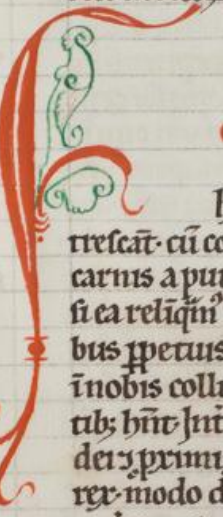 trescat· cū co
carnis a pu
si ea reliq̄m
bus ꝑpetuis
īnobis coll
tib; hn̄t· Int
dei ⁊ proxim
rex· modo d